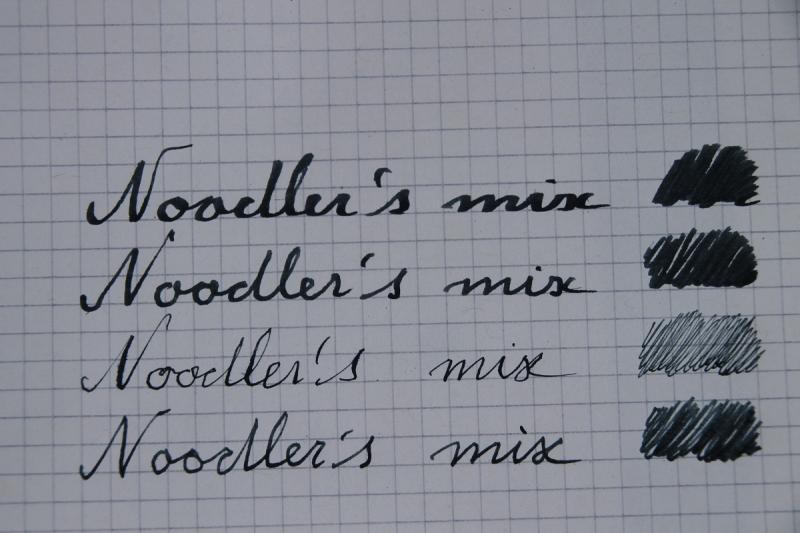 Noodler's mix
Noodler's mix
Noodler's mix
Noodler's mix